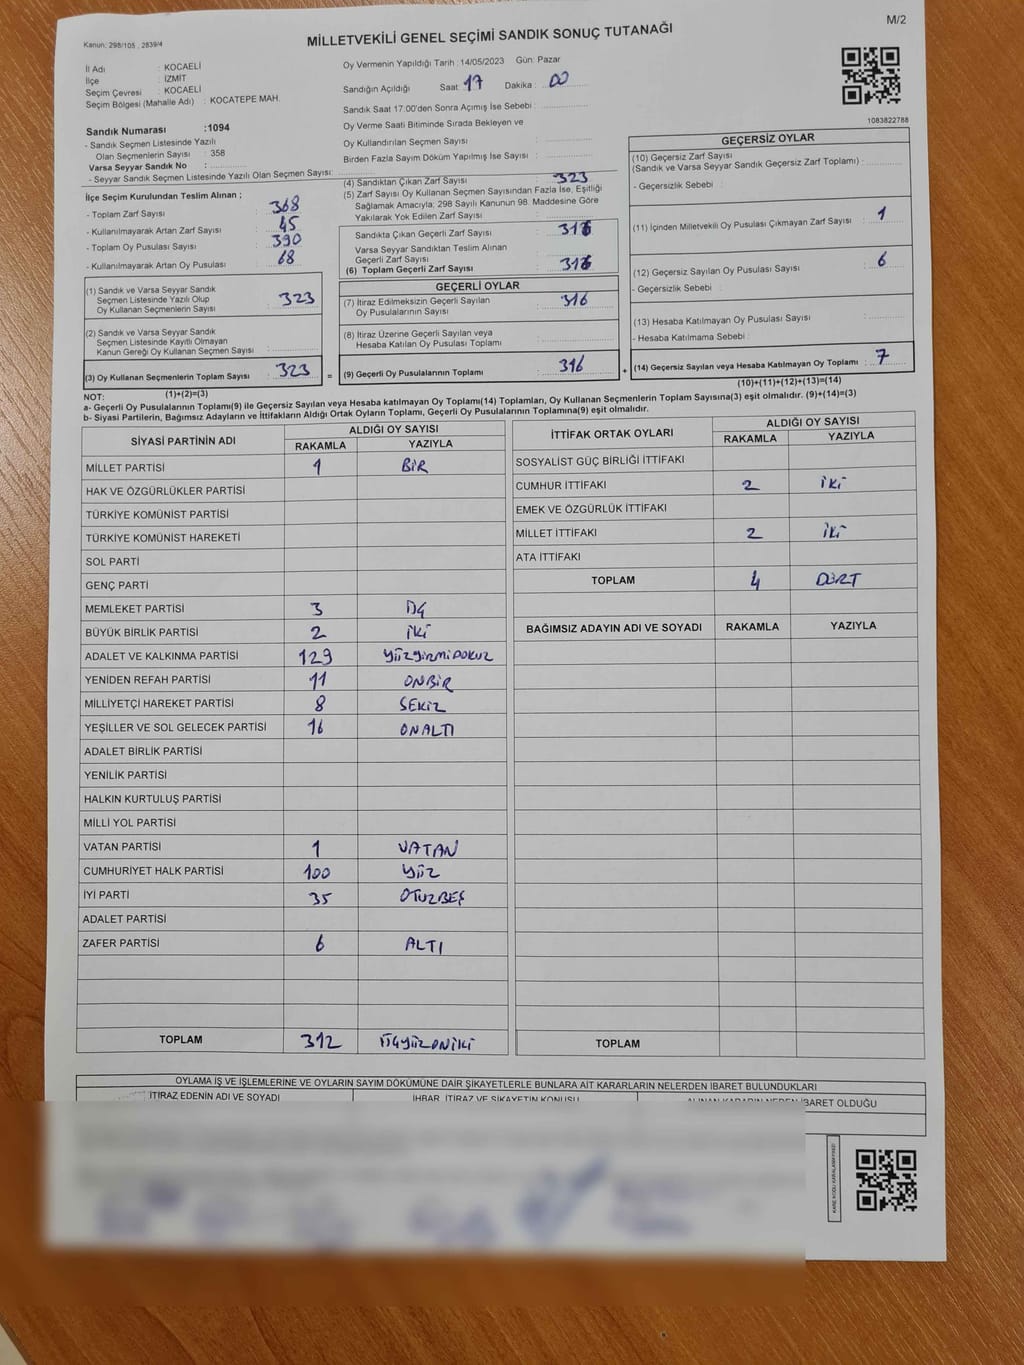 M/2
Kanun: 298/105 , 2839/4
MİLLETVEKİLİ GENEL SEÇİMİ SANDIK SONUÇ TUTANAĞI
İl Adı : KOCAELİ
İlçe : İZMİT
Seçim Çevresi : KOCAELİ
Seçim Bölgesi (Mahalle Adı) : KOCATEPE MAH.
Sandık Numarası :1094
- Sandık Seçmen Listesinde Yazılı
Olan Seçmenlerin Sayısı : 358
Varsa Seyyar Sandık No :
- Seyyar Sandık Seçmen Listesinde Yazılı Olan Seçmen Sayısı:
İlçe Seçim Kurulundan Teslim Alınan ;
- Toplam Zarf Sayısı : 368
- Kullanılmayarak Artan Zarf Sayısı : 45
- Toplam Oy Pusulası Sayısı : 390
- Kullanılmayarak Artan Oy Pusulası : 68
(1) Sandık ve Varsa Seyyar Sandık
Seçmen Listesinde Yazılı Olup
Oy Kullanan Seçmenlerin Sayısı : 323
(2) Sandık ve Varsa Seyyar Sandık
Seçmen Listesinde Kayıtlı Olmayan
Kanun Gereği Oy Kullanan Seçmen Sayısı :
(3) Oy Kullanan Seçmenlerin Toplam Sayısı : 323 =
Oy Vermenin Yapıldığı Tarih : 14/05/2023 Gün: Pazar
Sandığın Açıldığı Saat : 17 Dakika : 00
Sandık Saat 17:00'den Sonra Açımış İse Sebebi :
Oy Verme Saati Bitiminde Sırada Bekleyen ve
Oy Kullandırılan Seçmen Sayısı :
Birden Fazla Sayım Döküm Yapılmış İse Sayısı :
(4) Sandıktan Çıkan Zarf Sayısı : 323
(5) Zarf Sayısı Oy Kullanan Seçmen Sayısından Fazla İse, Eşitliği
Sağlamak Amacıyla; 298 Sayılı Kanunun 98. Maddesine Göre
Yakılarak Yok Edilen Zarf Sayısı :
Sandıkta Çıkan Geçerli Zarf Sayısı : 316
Varsa Seyyar Sandıktan Teslim Alınan
Geçerli Zarf Sayısı
(6) Toplam Geçerli Zarf Sayısı : 316
GEÇERLİ OYLAR
(7) İtiraz Edilmeksizin Geçerli Sayılan
Oy Pusulalarının Sayısı : 316
(8) İtiraz Üzerine Geçerli Sayılan veya
Hesaba Katılan Oy Pusulası Toplamı :
(9) Geçerli Oy Pusulalarının Toplamı : 316 +
1083822788
GEÇERSİZ OYLAR
(10) Geçersiz Zarf Sayısı
(Sandık ve Varsa Seyyar Sandık Geçersiz Zarf Toplamı) :
- Geçersizlik Sebebi :
(11) İçinden Milletvekili Oy Pusulası Çıkmayan Zarf Sayısı : 1
(12) Geçersiz Sayılan Oy Pusulası Sayısı : 6
- Geçersizlik Sebebi :
(13) Hesaba Katılmayan Oy Pusulası Sayısı :
- Hesaba Katılmama Sebebi :
(14) Geçersiz Sayılan veya Hesaba Katılmayan Oy Toplamı : 7
NOT: (1)+(2)=(3) (10)+(11)+(12)+(13)=(14)
a- Geçerli Oy Pusulalarının Toplamı(9) ile Geçersiz Sayılan veya Hesaba Katılmayan Oy Toplamı(14) Toplamları, Oy Kullanan Seçmenlerin Toplam Sayısına(3) eşit olmalıdır. (9)+(14)=(3)
b- Siyasi Partilerin, Bağımsız Adayların ve İttifakların Aldığı Ortak Oyların Toplamı, Geçerli Oy Pusulalarının Toplamına(9) eşit olmalıdır.
SİYASİ PARTİNİN ADI ALDIĞI OY SAYISI
RAKAMLA YAZIYLA
MİLLET PARTİSİ 1 BİR
HAK VE ÖZGÜRLÜKLER PARTİSİ
TÜRKİYE KOMÜNİST PARTİSİ
TÜRKİYE KOMÜNİST HAREKETİ
SOL PARTİ
GENÇ PARTİ
MEMLEKET PARTİSİ 3 ÜÇ
BÜYÜK BİRLİK PARTİSİ 2 İKİ
ADALET VE KALKINMA PARTİSİ 129 YÜZYİRMİDOKUZ
YENİDEN REFAH PARTİSİ 11 ONBİR
MİLLİYETÇİ HAREKET PARTİSİ 8 SEKİZ
YEŞİLLER VE SOL GELECEK PARTİSİ 16 ONALTI
ADALET BİRLİK PARTİSİ
YENİLİK PARTİSİ
HALKIN KURTULUŞ PARTİSİ
MİLLİ YOL PARTİSİ
VATAN PARTİSİ 1 VATAN
CUMHURİYET HALK PARTİSİ 100 YÜZ
İYİ PARTİ 35 OTUZBEŞ
ADALET PARTİSİ
ZAFER PARTİSİ 6 ALTI
TOPLAM 312 ÜÇYÜZONİKİ
İTTİFAK ORTAK OYLARI ALDIĞI OY SAYISI
RAKAMLA YAZIYLA
SOSYALİST GÜÇ BİRLİĞİ İTTİFAKI
CUMHUR İTTİFAKI 2 İKİ
EMEK VE ÖZGÜRLÜK İTTİFAKI
MİLLET İTTİFAKI 2 İKİ
ATA İTTİFAKI
TOPLAM 4 DÖRT
BAĞIMSIZ ADAYIN ADI VE SOYADI RAKAMLA YAZIYLA
TOPLAM
OYLAMA İŞ VE İŞLEMLERİNE VE OYLARIN SAYIM DÖKÜMÜNE DAİR ŞİKAYETLERLE BUNLARA AİT KARARLARIN NELERDEN İBARET BULUNDUKLARI
İTİRAZ EDENİN ADI VE SOYADI İHBAR, İTİRAZ VE ŞİKAYETİN KONUSU ALINAN KARARIN NEDEN İBARET OLDUĞU